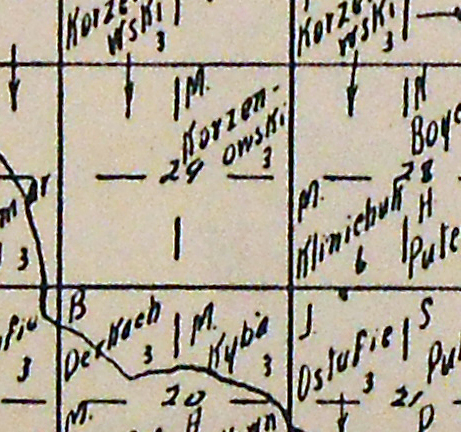 Korze
wski
3
Korze
wski
3
M.
Korzen-
owski
3
29
N
Boye
28
M.
Klinichuk
6
H
Pute
3
B
Derkach
3
M.
Kyba
3
J
Ostafie
3
S
Pu
3
M.
20
H
21
D